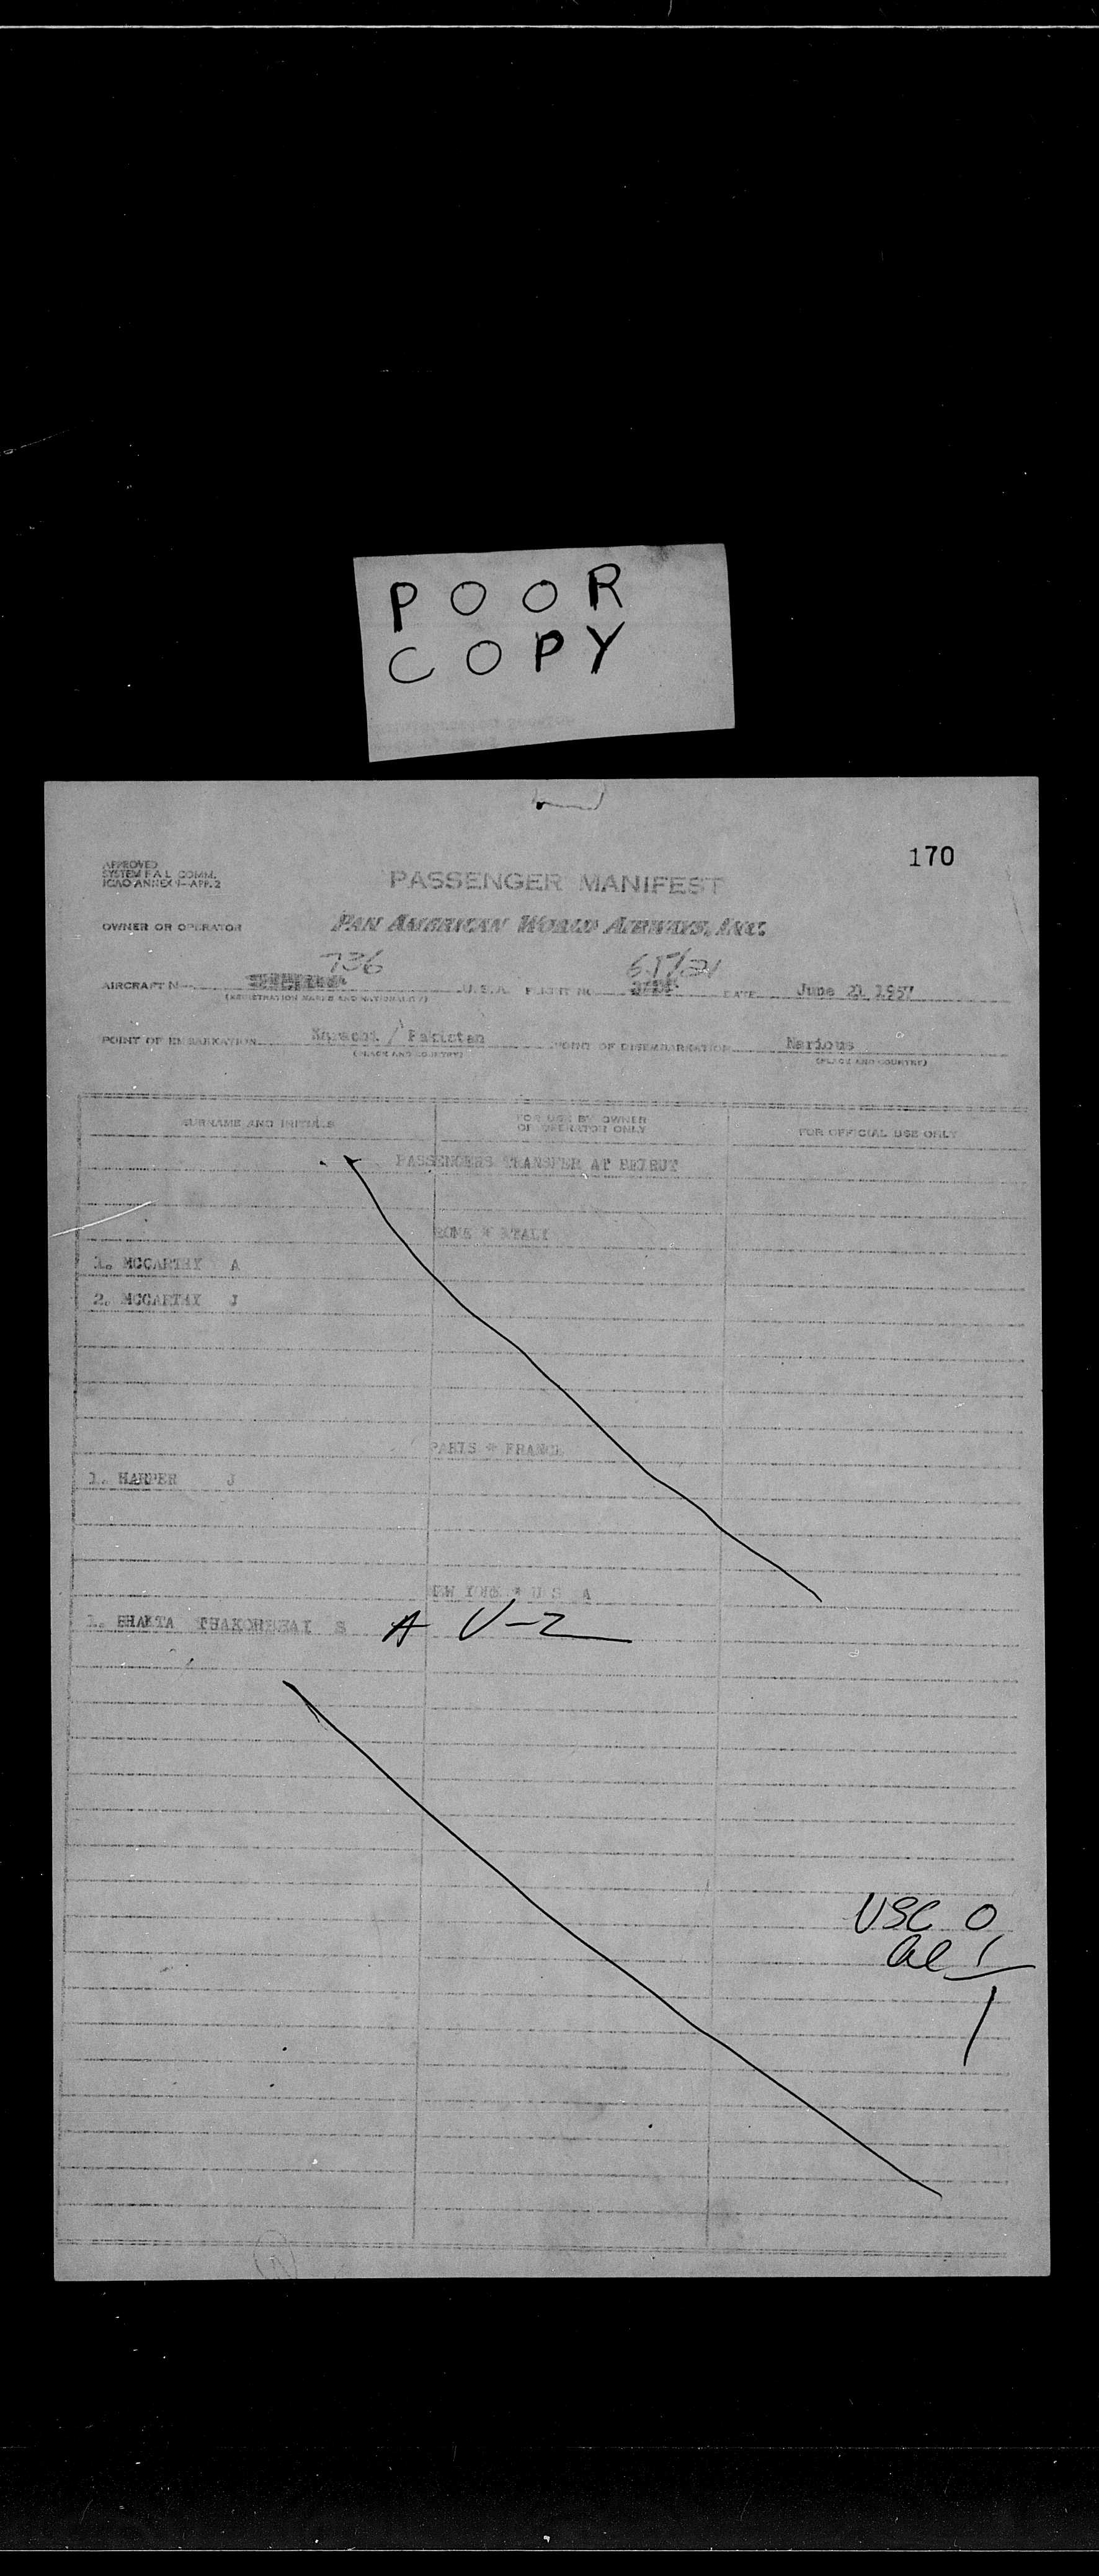 POOR
COPY
170
APPROVED
SYSTEM F A L COMM.
ICAO ANNEX 9—APP. 2
PASSENGER MANIFEST
OWNER OR OPERATOR PAN AMERICAN WORLD AIRWAYS, INC.
736
AIRCRAFT N U.S.A. FLIGHT NO. DATE June 21 1957
(REGISTRATION MARKS AND NATIONALITY)
POINT OF EMBARKATION Karachi / Pakistan POINT OF DISEMBARKATION Various
(PLACE AND COUNTRY) (PLACE AND COUNTRY)
SURNAME AND INITIALS FOR USE BY OWNER OR OPERATOR ONLY FOR OFFICIAL USE ONLY
PASSENGERS TRANSFER AT BEIRUT
ROME * ITALY
1. MCCARTHY A
2. MCCARTHY J
PARIS * FRANCE
1. HARPER J
NEW YORK * U S A
1. BHAKTA THAKORBHAI S A V-2
USC 0
al 1
1